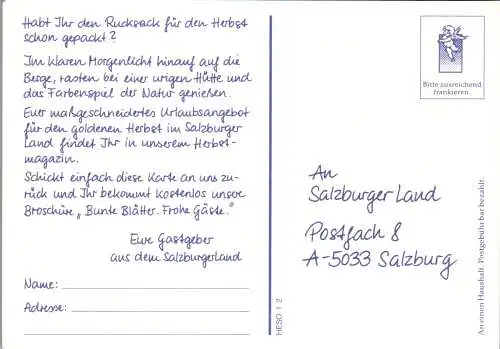 Habt Ihr den Rucksack für den Herbst
schon gepackt?
Im klaren Morgenlicht hinauf auf die
Berge, rasten bei einer urigen Hütte und
das Farbenspiel der Natur genießen.
Euer maßgeschneidertes Urlaubsangebot
für den goldenen Herbst im Salzburger
Land findet Ihr in unserem Herbst-
magazin.
Schickt einfach diese Karte an uns zu-
rück und Ihr bekommt kostenlos unsere
Broschüre „Bunte Blätter. Frohe Gäste."
Eure Gastgeber
aus dem SalzburgerLand
Name:
Adresse:
HESO 1 2
Bitte ausreichend
frankieren.
An
SalzburgerLand
Postfach 8
A-5033 Salzburg
An einen Haushalt. Postgebühr bar bezahlt.